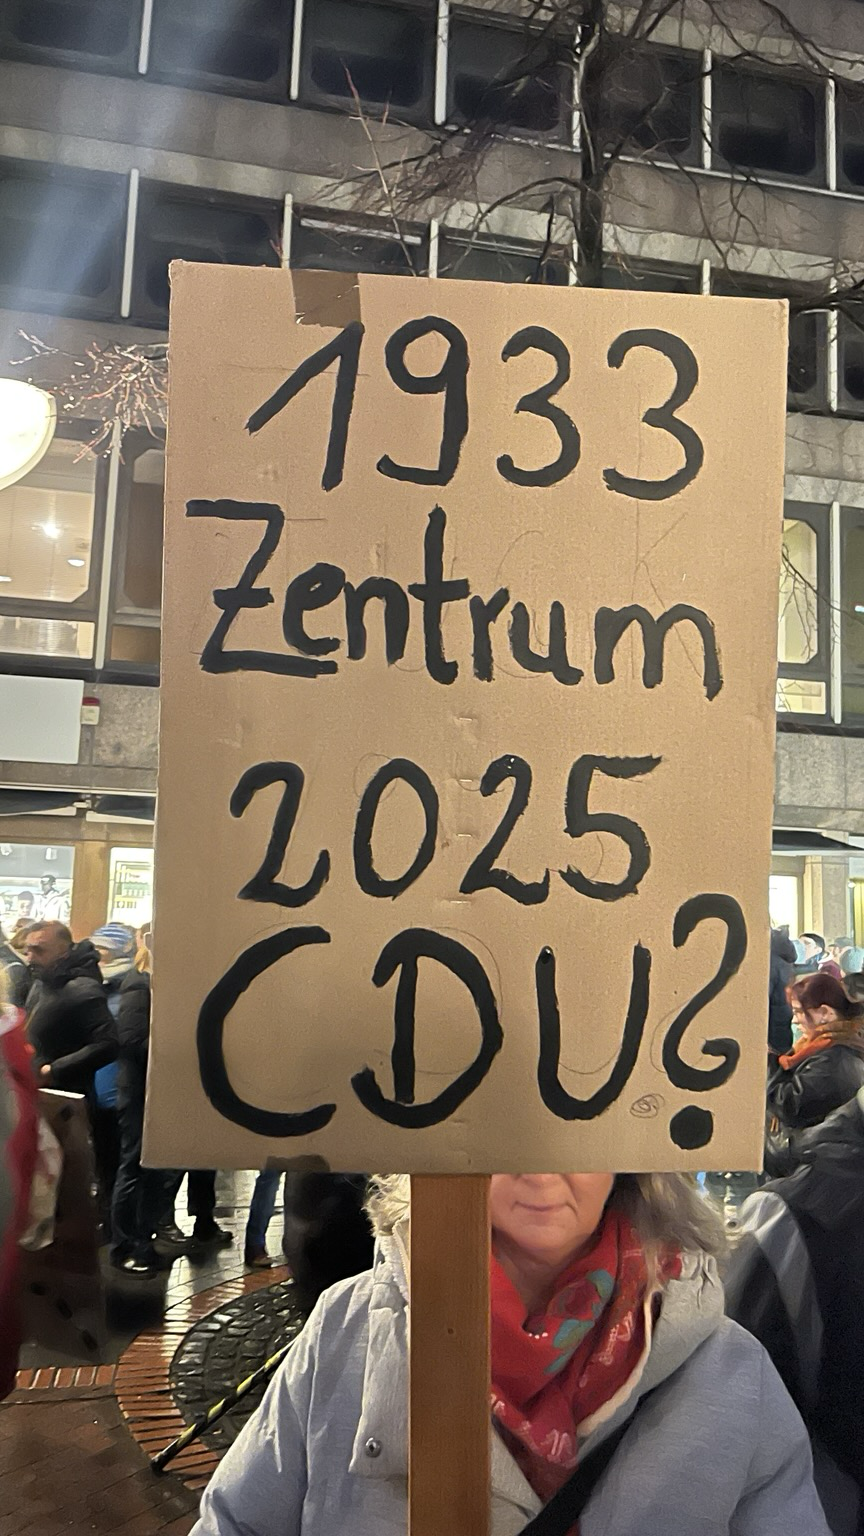 1933
Zentrum
2025
CDU?